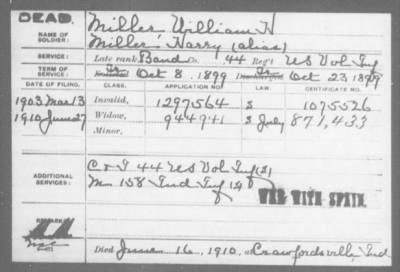 DEAD.
Miller William H
NAME OF SOLDIER:
Miller Harry (alias)
SERVICE:
Late rank, Band Co. 44 Reg't US Vol Inf
TERM OF SERVICE:
Enlisted Oct 8, 1899 Discharged Oct 23 1899
DATE OF FILING. CLASS. APPLICATION NO. LAW. CERTIFICATE NO.
1903 Mar 13 Invalid, 1297564 S 1075526
1910 June 27 Widow, 944941 S July 871,433
Minor,
ADDITIONAL SERVICES:
C & I 44 US Vol Inf
M 158 Ind Inf
WAR WITH SPAIN.
REMARKS:
Died June 16, 1910, at Crawfordsville, Ind